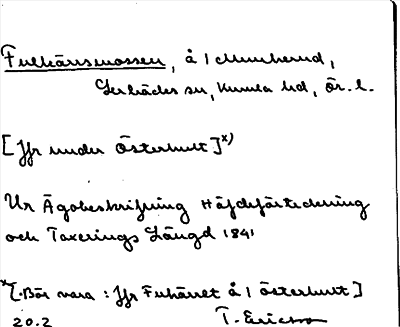 Fulkärrsmossen, å 1 Munkerud,
Lerbäcks sn, Kumla hd, Ör. l.
[Jfr under Österhult]x)
Ur Ägobeskrifning Häfdeförteckning
och Taxerings Längd 1841
x[. Bör vara: Jfr Fukärret å 1 Österhult]
20.2 T. Ericsson